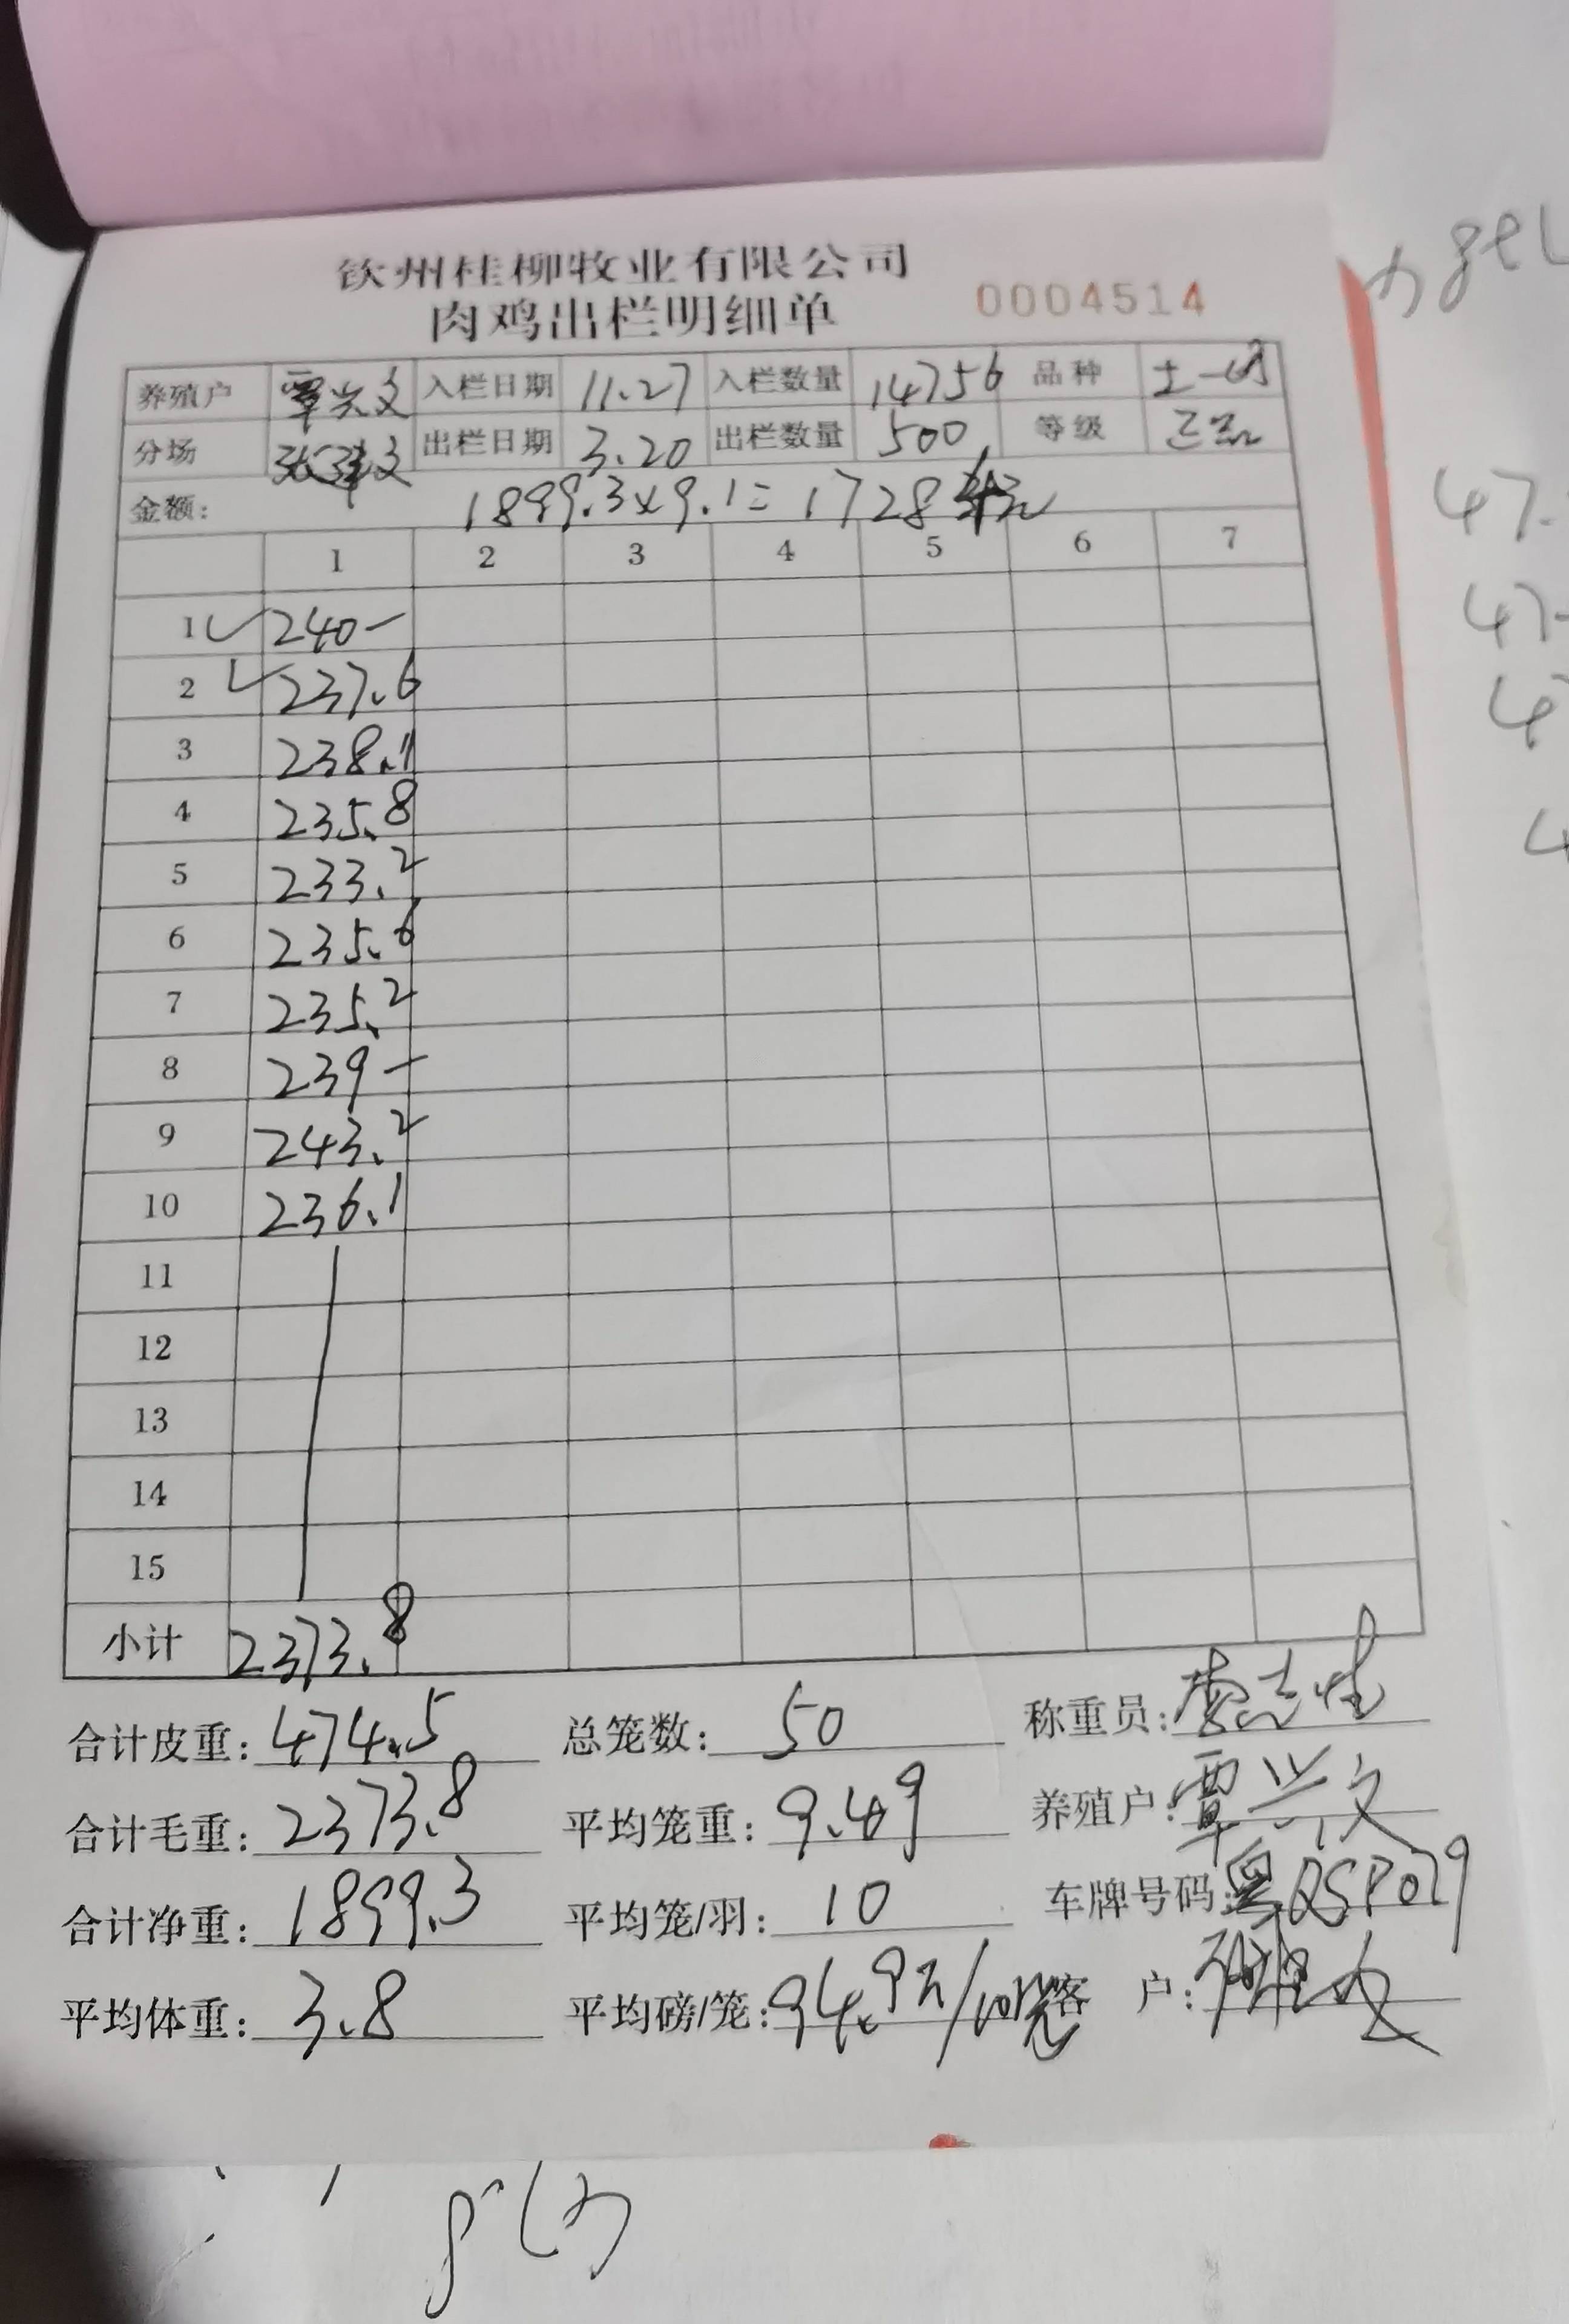 钦州桂柳牧业有限公司
肉鸡出栏明细单 0004514
养殖户 覃兴文 入栏日期 11.27 入栏数量 14756 品种 土一
分场 出栏日期 3.20 出栏数量 500 等级 正品
金额: 1899.3×9.1=1728
1 2 3 4 5 6 7
1 240-
2 237.6
3 238.1
4 235.8
5 233.2
6 235.6
7 235.2
8 239-
9 243.2
10 236.1
11
12
13
14
15
小计 2373.8
合计皮重: 474.5 总笼数: 50 称重员:
合计毛重: 2373.8 平均笼重: 9.49 养殖户: 覃兴文
合计净重: 1899.3 平均笼/羽: 10 车牌号码: 粤QSP029
平均体重: 3.8 平均磅/笼: 94.9 客 户:
47.
47.